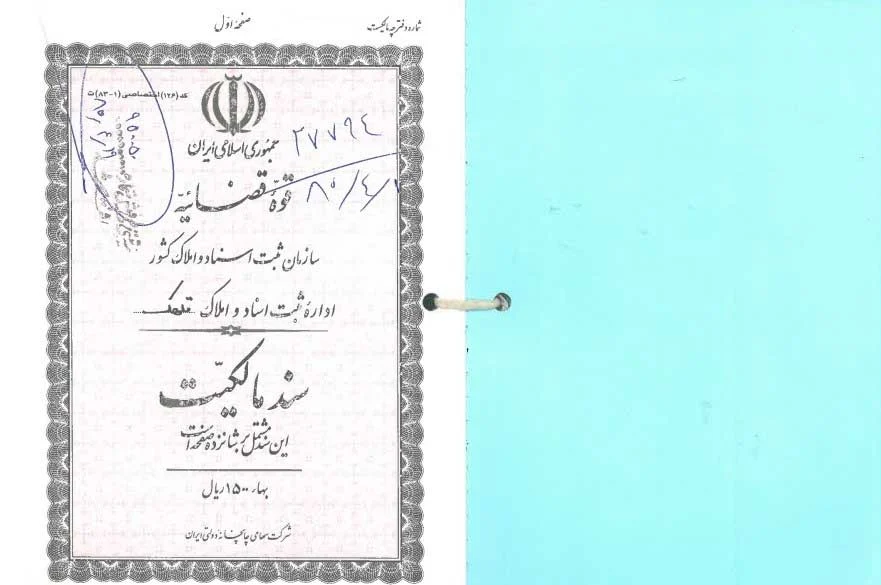 شماره دفترچه مالکیت
صفحۀ اول
کد (۱۲۶) اختصاصی (۱-۸۳) ت
جمهوری اسلامی ایران
۲۷۷۹۴
قوۀ قضائیه
۸۰/۴/
سازمان ثبت اسناد و املاک کشور
ادارۀ ثبت اسناد و املاک قلهک
سند مالکیت
این سند مشتمل بر شانزده صفحه است
بهاء ۱۵۰۰ ریال
شرکت سهامی چاپخانه دولتی ایران